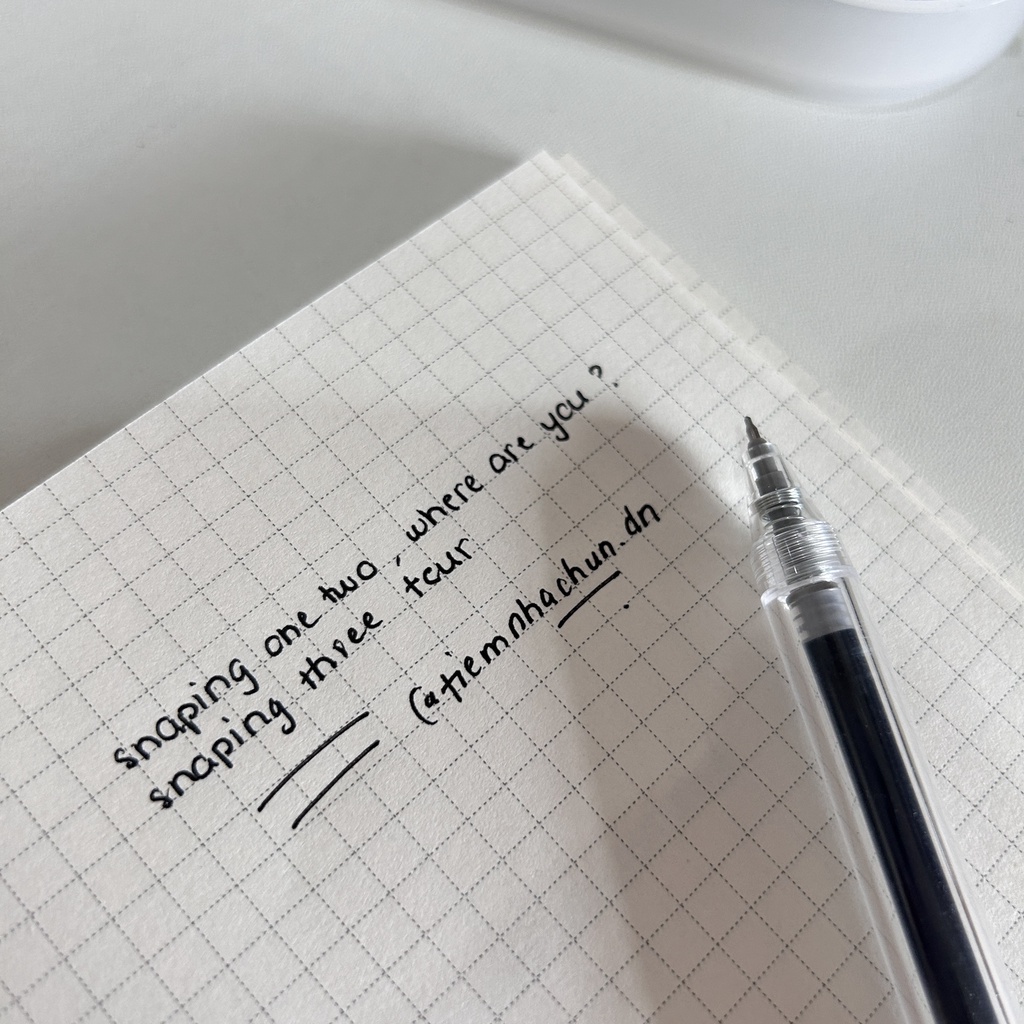 snaping one two, where are you?
snaping three four
@tiemnhachun.dn